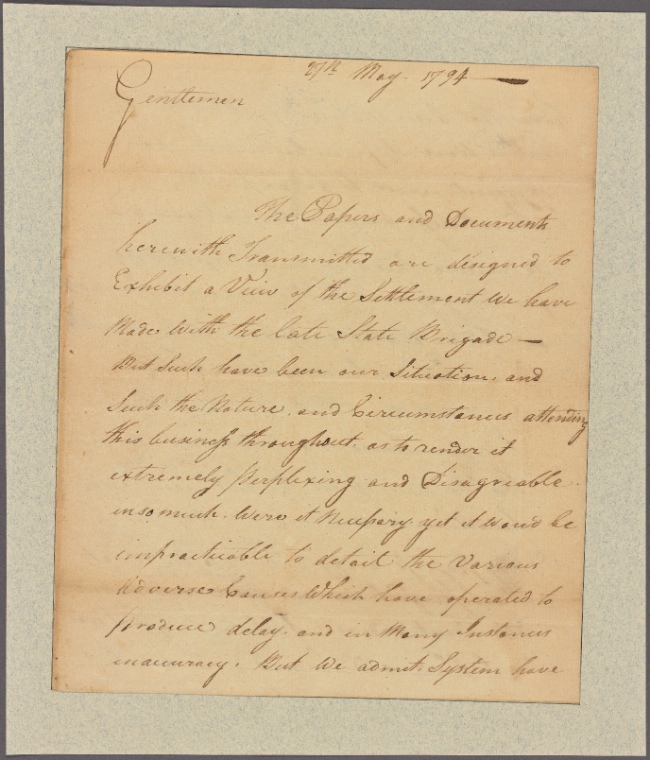 27th May. 1794
Gentlemen
The Papers and Documents
herewith Transmitted are designed to
Exhibit a View of the Settlement we have
Made With the late State Brigade
But Such have been our Situation, and
Such the Nature, and Circumstances attending
this business throughout. as to render it
extremely perplexing and Disagreable.
insomuch. Were it Necessary yet it would be
impracticable to detail the Various
Adverse Causes Which have operated to
produce delay. and in Many Instances
inaccuracy. But We admit System have